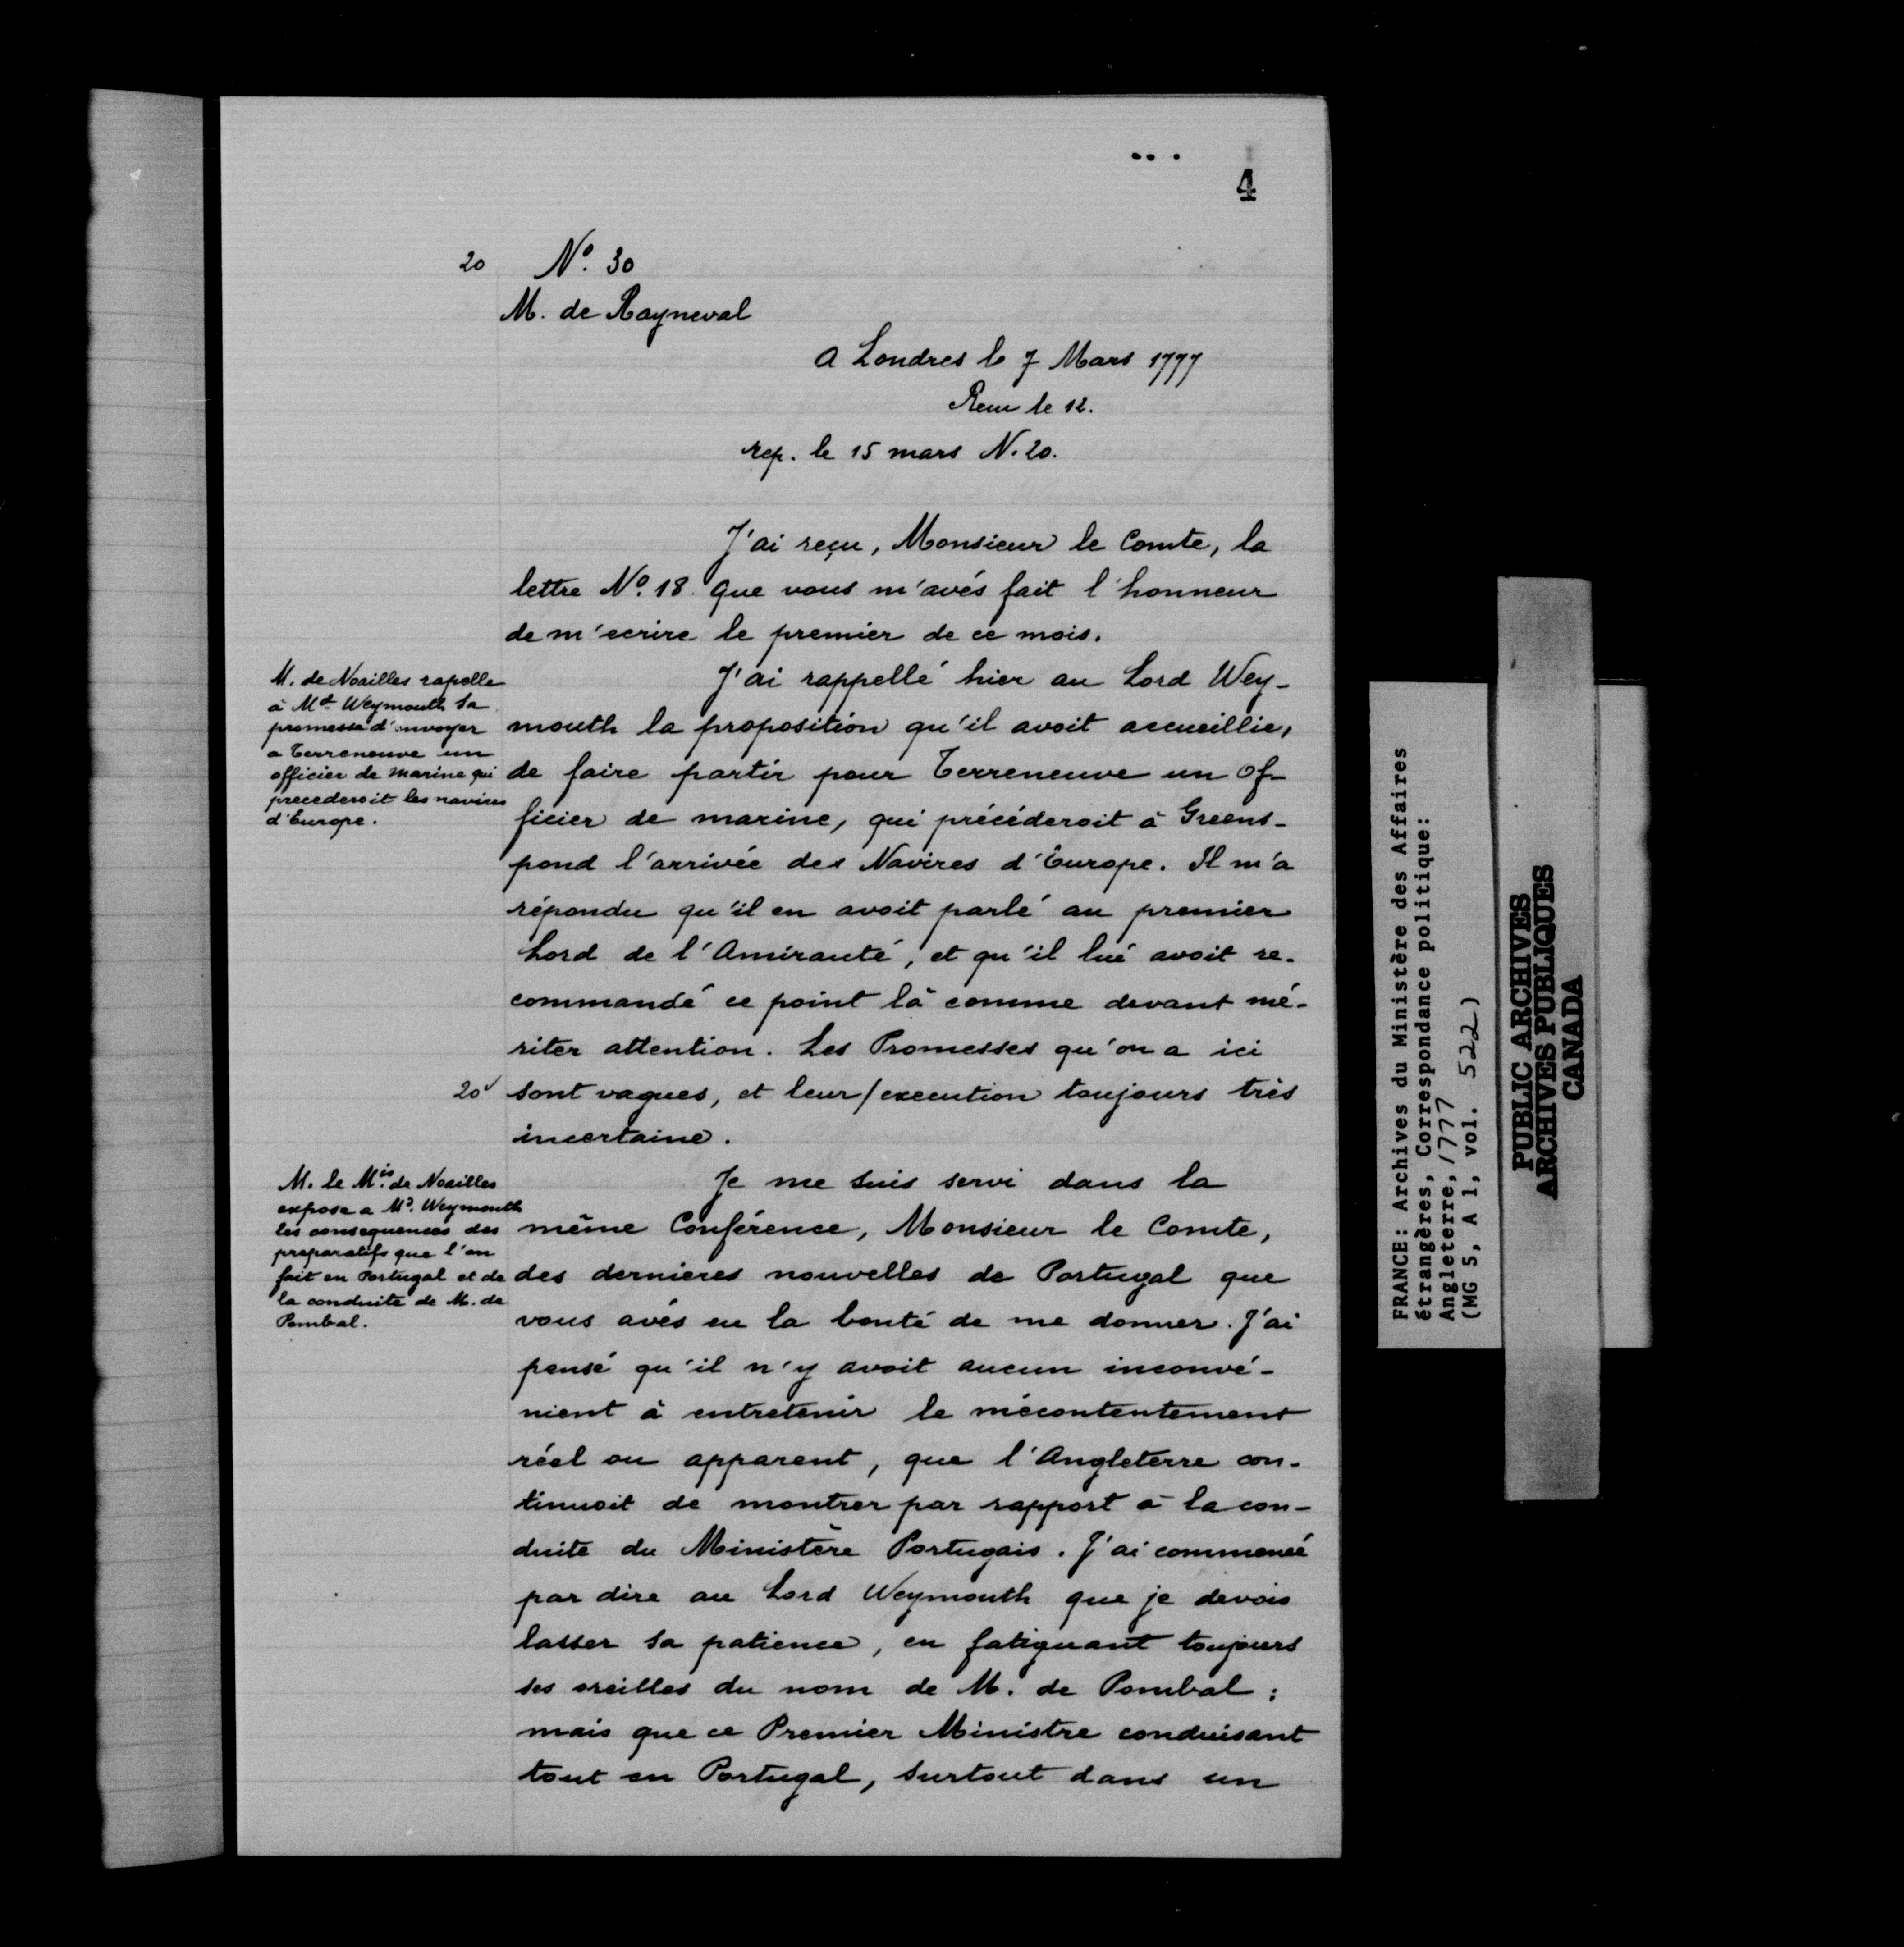 4
20 Nº. 30
M. de Rayneval
A Londres le 7 Mars 1777
Recu le 12.
rep. le 15 mars N. 20.
J'ai reçu, Monsieur le Comte, la
lettre Nº. 18. que vous m'avés fait l'honneur
de m'ecrire le premier de ce mois.
M. de Noailles rapelle
à Md Weymouth sa
promesse d'envoyer
a Terreneuve un
officier de marine qui
precederoit les navires
d'Europe.
J'ai rappellé hier au Lord Wey-
mouth la proposition qu'il avoit accueillie,
de faire partir pour Terreneuve un Of-
ficier de marine, qui précéderoit à Greens-
pond l'arrivée des Navires d'Europe. Il m'a
répondu qu'il en avoit parlé au premier
Lord de l'Amirauté, et qu'il lui avoit re-
commandé ce point là comme devant mé-
riter attention. Les Promesses qu'on a ici
20v sont vagues, et leur/execution toujours très
incertaine.
M. le Mis. de Noailles
expose a Md. Weymouth
les consequences des
preparatifs que l'on
fait en Portugal et de
la conduite de M. de
Pombal.
Je me suis servi dans la
même Conférence, Monsieur le Comte,
des dernieres nouvelles de Portugal que
vous avés eu la bonté de me donner. J'ai
pensé qu'il n'y avoit aucun inconvé-
nient à entretenir le mécontentement
réel ou apparent, que l'Angleterre con-
tinuoit de montrer par rapport à la con-
duite du Ministère Portugais. J'ai commencé
par dire au Lord Weymouth que je devois
lasser sa patience, en fatiguant toujours
ses oreilles du nom de M. de Pombal;
mais que ce Premier Ministre conduisant
tout en Portugal, surtout dans un
FRANCE: Archives du Ministère des Affaires
étrangères, Correspondance politique:
Angleterre, 1777
(MG 5, A 1, vol. 522)
PUBLIC ARCHIVES
ARCHIVES PUBLIQUES
CANADA